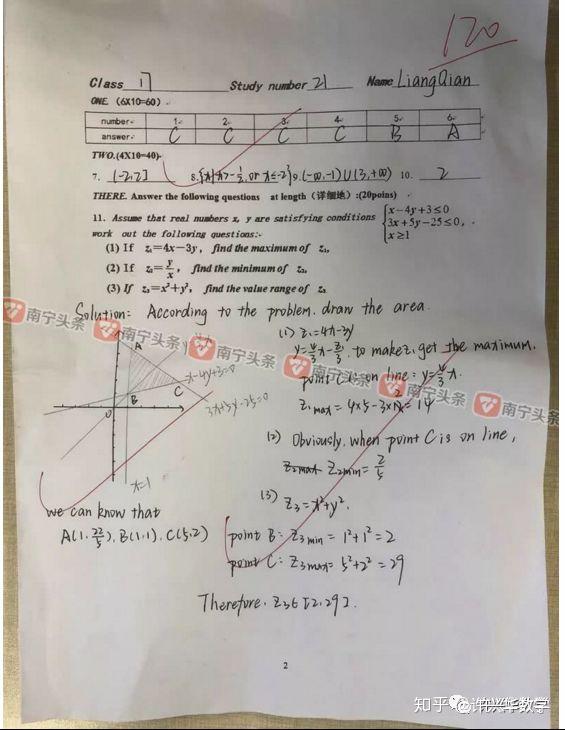 120
Class 17 Study number 21 Name LiangQian
ONE. (6X10=60)
number 1. 2. 3. 4. 5. 6.
answer C C C C B A
TWO.(4X10=40)
7. [-2,2] 8. {x|x>-1/2, or x≤-2} 9. (-∞,-1)∪(3,+∞) 10. 2
THERE. Answer the following questions at length (详细地):(20poins)
11. Assume that real numbers x, y are satisfying conditions { x-4y+3≤0 3x+5y-25≤0, x≥1
work out the following questions:
(1) If z₁=4x-3y, find the maximum of z₁,
(2) If z₂=y/x, find the minimum of z₂,
(3) If z₃=x²+y², find the value range of z₃
Solution: According to the problem. draw the area.
(1) z₁=4x-3y
y=4/3x-z₁/3. to make z₁ get the maximum.
point C is on line: y=4/3x.
z₁max=4×5-3×2=14
(2) Obviously, when point C is on line,
z₂min=2/5
(3) z₃=x²+y².
point B: z₃min=1²+1²=2
point C: z₃max=5²+2²=29
Therefore. z₃∈[2,29].
A
x-4y+3=0
C
B
3x+5y-25=0
0
x=1
we can know that
A(1,22/5), B(1,1), C(5,2)
2
南宁头条
南宁头条
南宁头条
南宁头条
南宁头条
南宁头条
知乎 @许兴华数学